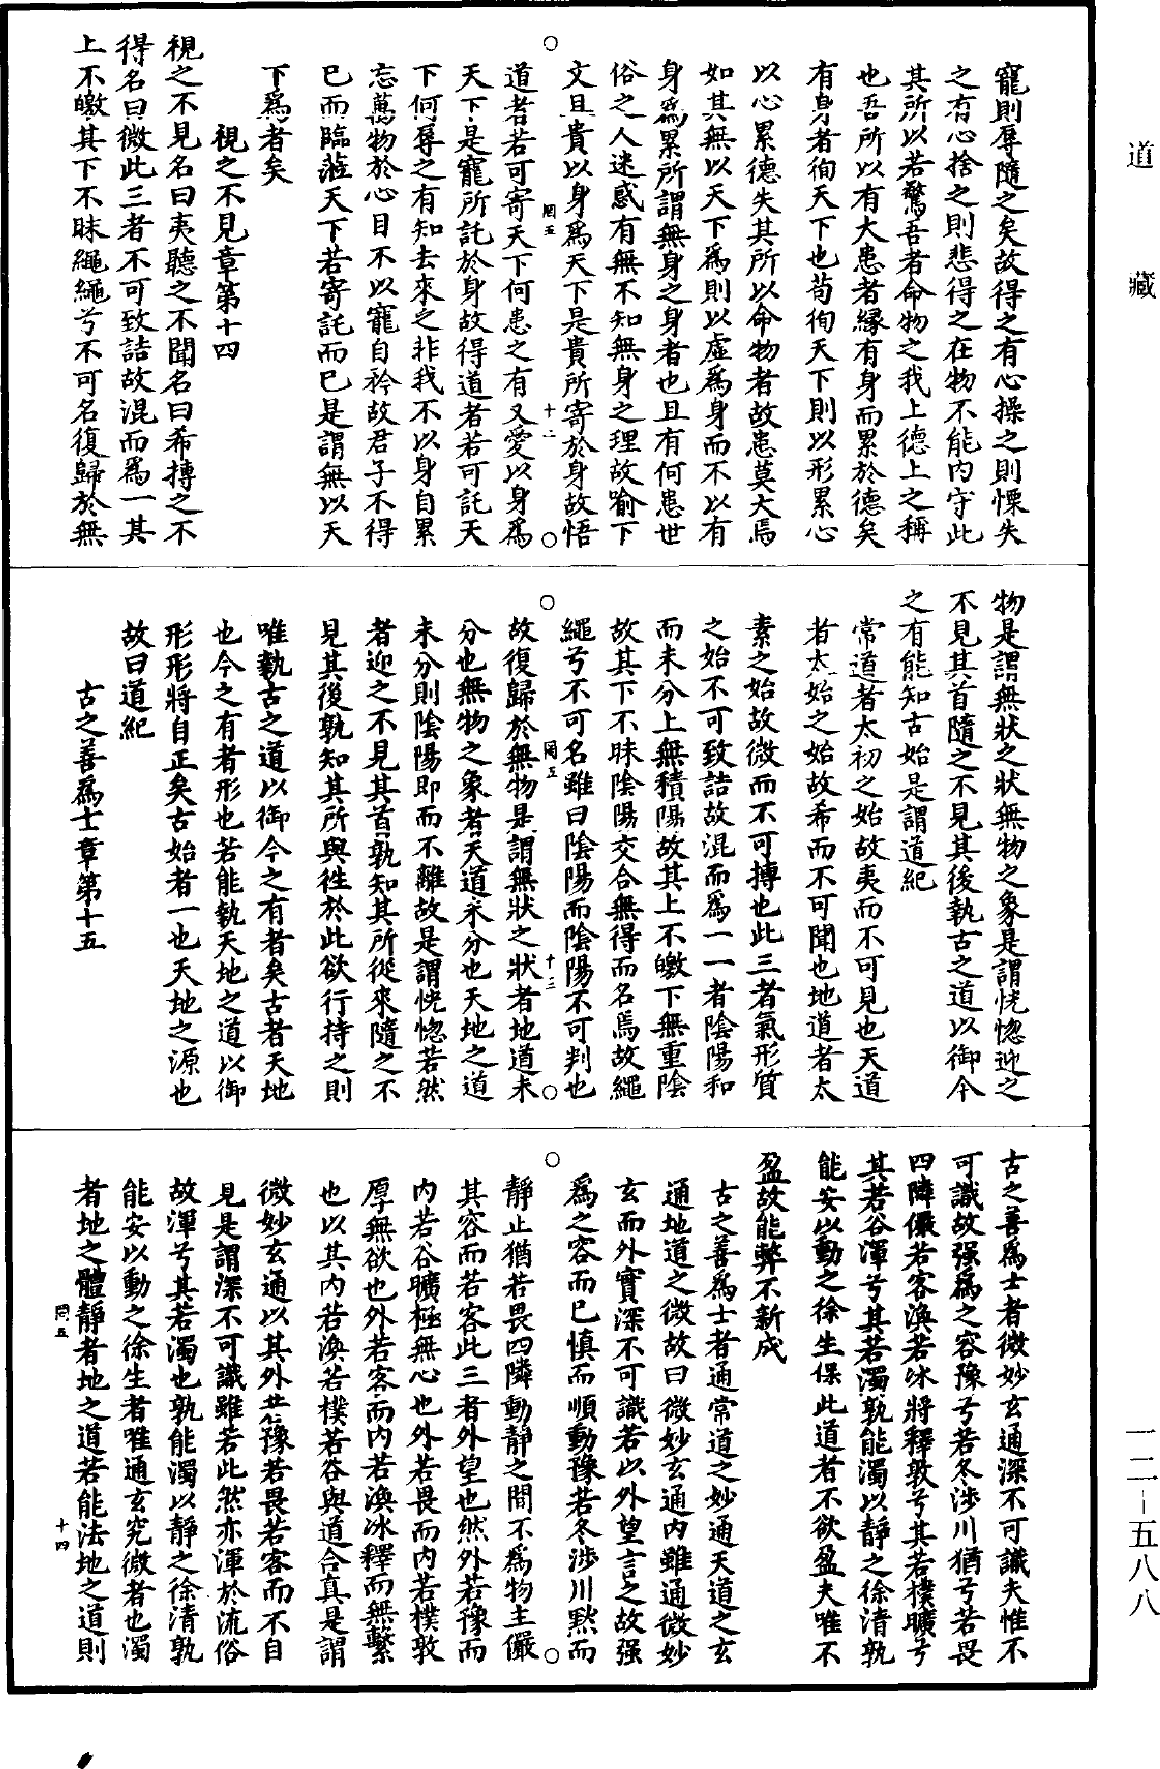 道藏
寵則辱隨之矣故得之有心操之則慄失
之有心捨之則悲得之在物不能內守此
其所以若驚吾者命物之我上德上之稱
也吾所以有大患者緣有身而累於德矣
有身者徇天下也苟徇天下則以形累心
以心累德失其所以命物者故患莫大焉
如其無以天下為則以虛為身而不以有
身為累所謂無身之身者也且有何患世
俗之人迷惑有無不知無身之理故喻下
文且貴以身為天下是貴所寄於身故悟
罔五
十二
道者若可寄天下何患之有又愛以身為
天下是寵所託於身故得道者若可託天
下何辱之有知去來之非我不以身自累
忘萬物於心目不以寵自矜故君子不得
已而臨蒞天下若寄託而已是謂無以天
下為者矣
視之不見章第十四
視之不見名曰夷聽之不聞名曰希摶之不
得名曰微此三者不可致詰故混而為一其
上不皦其下不昧繩繩兮不可名復歸於無
物是謂無狀之狀無物之象是謂恍惚迎之
不見其首隨之不見其後執古之道以御今
之有能知古始是謂道紀
常道者太初之始故夷而不可見也天道
者太始之始故希而不可聞也地道者太
素之始故微而不可摶也此三者氣形質
之始不可致詰故混而為一一者陰陽和
而未分上無積陽故其上不皦下無重陰
故其下不昧陰陽交合無得而名焉故繩
繩兮不可名雖曰陰陽而陰陽不可判也
罔五
十三
故復歸於無物是謂無狀之狀者地道未
分也無物之象者天道未分也天地之道
未分則陰陽即而不離故是謂恍惚若然
者迎之不見其首孰知其所從來隨之不
見其後孰知其所與徃於此欲行持之則
唯執古之道以御今之有者矣古者天地
也今之有者形也若能執天地之道以御
形形將自正矣古始者一也天地之源也
故曰道紀
古之善為士章第十五
古之善為士者微妙玄通深不可識夫惟不
可識故强為之容豫兮若冬涉川猶兮若畏
四隣儼若客渙若冰將釋敦兮其若樸曠兮
其若谷渾兮其若濁孰能濁以靜之徐清孰
能安以動之徐生保此道者不欲盈夫唯不
盈故能弊不新成
古之善為士者通常道之妙通天道之玄
通地道之微故曰微妙玄通內雖通微妙
玄而外實深不可識若以外望言之故强
為之容而已慎而順動豫若冬涉川黙而
靜止猶若畏四隣動靜之間不為物主儼
其容而若客此三者外望也然外若豫而
內若谷曠極無心也外若畏而內若樸敦
厚無欲也外若客而內若渙冰釋而無繫
也以其內若渙若樸若谷與道合真是謂
微妙玄通以其外若豫若畏若客而不自
見是謂深不可識雖若此然亦渾於流俗
故渾兮其若濁也孰能濁以靜之徐清孰
能安以動之徐生者唯通玄究微者也濁
者地之體靜者地之道若能法地之道則
罔五
十四
一二—五八八